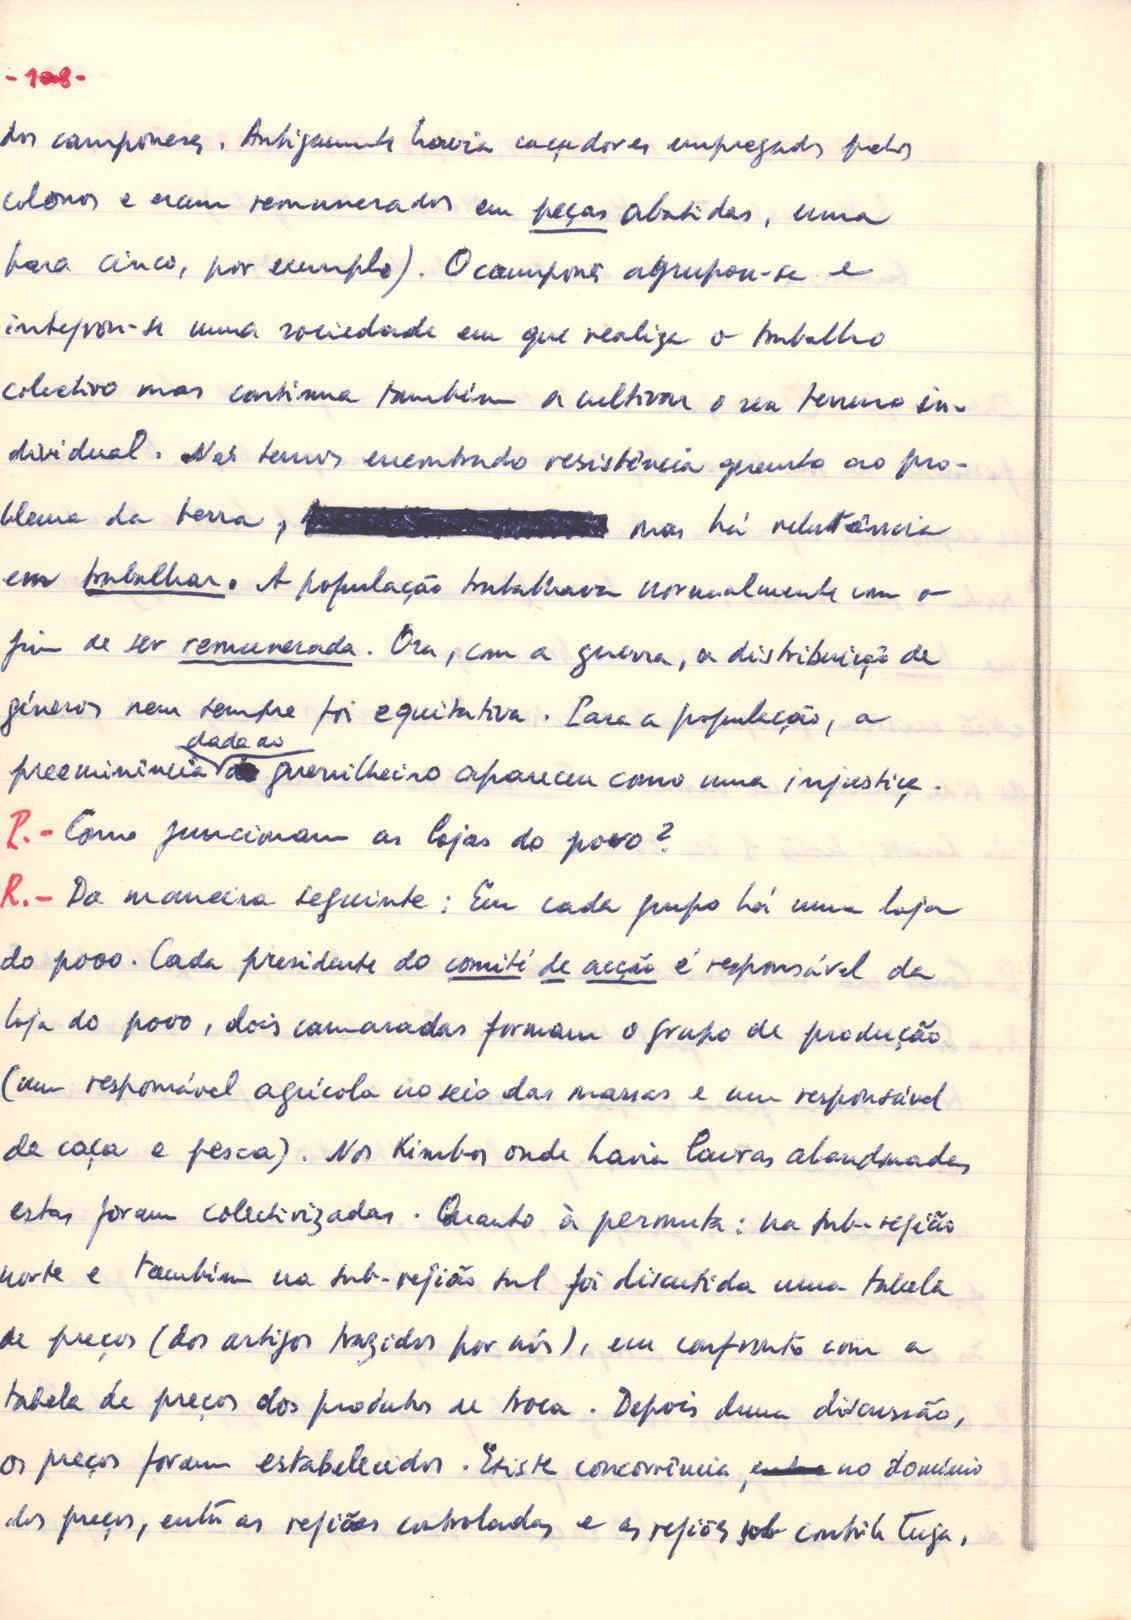 -108-
dos camponeses. Antigamente havia caçadores empregados pelos
colonos e eram remunerados em peças abatidas, uma
para cinco, por exemplo). O camponês agrupou-se e
integrou-se numa sociedade em que realiza o trabalho
colectivo mas continua também a cultivar o seu terreno in-
dividual. Não temos encontrado resistência quanto ao pro-
blema da terra, mas há relutância
em trabalhar. A população trabalhava normalmente com o
fim de ser remunerada. Ora, com a guerra, a distribuição de
géneros nem sempre foi equitativa. Para a população, a
dada ao
preeminência guerrilheiro apareceu como uma injustiça.
P.- Como funcionam as lojas do povo?
R.- Da maneira seguinte: Em cada grupo há uma loja
do povo. Cada presidente do comité de acção é responsável da
loja do povo, dois camaradas formam o grupo de produção
(um responsável agrícola no seio das massas e um responsável
da caça e pesca). Nos Kimbos onde havia lavras abandonadas
estas foram colectivizadas. Quanto à permuta: na sub-região
norte e também na sub-região sul foi discutida uma tabela
de preços (dos artigos trazidos por nós), em confronto com a
tabela de preços dos produtos de troca. Depois duma discussão,
os preços foram estabelecidos. Existe concorrência, entre no domínio
dos preços, entre as regiões controladas e as regiões sob contrôle tuga,